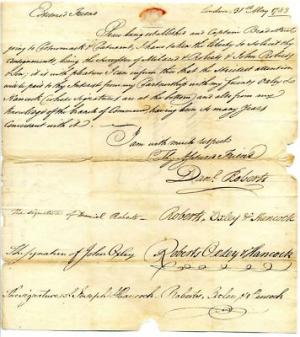 Esteemed Friend
London 31st May 1783
Now being established and Captain Bradstreet
going to Potowmack & Patuxent, I have taken the liberty to solicit thy
Consignments, being the Successor of & Roberts & John Roberts
Son, it is with pleasure I can inform thee that the strictest attention
will be paid to thy Interest from my Partnership with my Friends Oxley &
Hancock (whose Signatures are at bottom) and also from my
knowledge of the Branch of Commerce having been so many years
Conversant with it
I am with much respect
Thy Assured Friend
Danl. Roberts
The signature of Daniel Roberts — Roberts, Oxley & Hancock
The signature of John Oxley Roberts Oxley & Hancock
The signature of Joseph Hancock. Roberts, Oxley, & Hancock